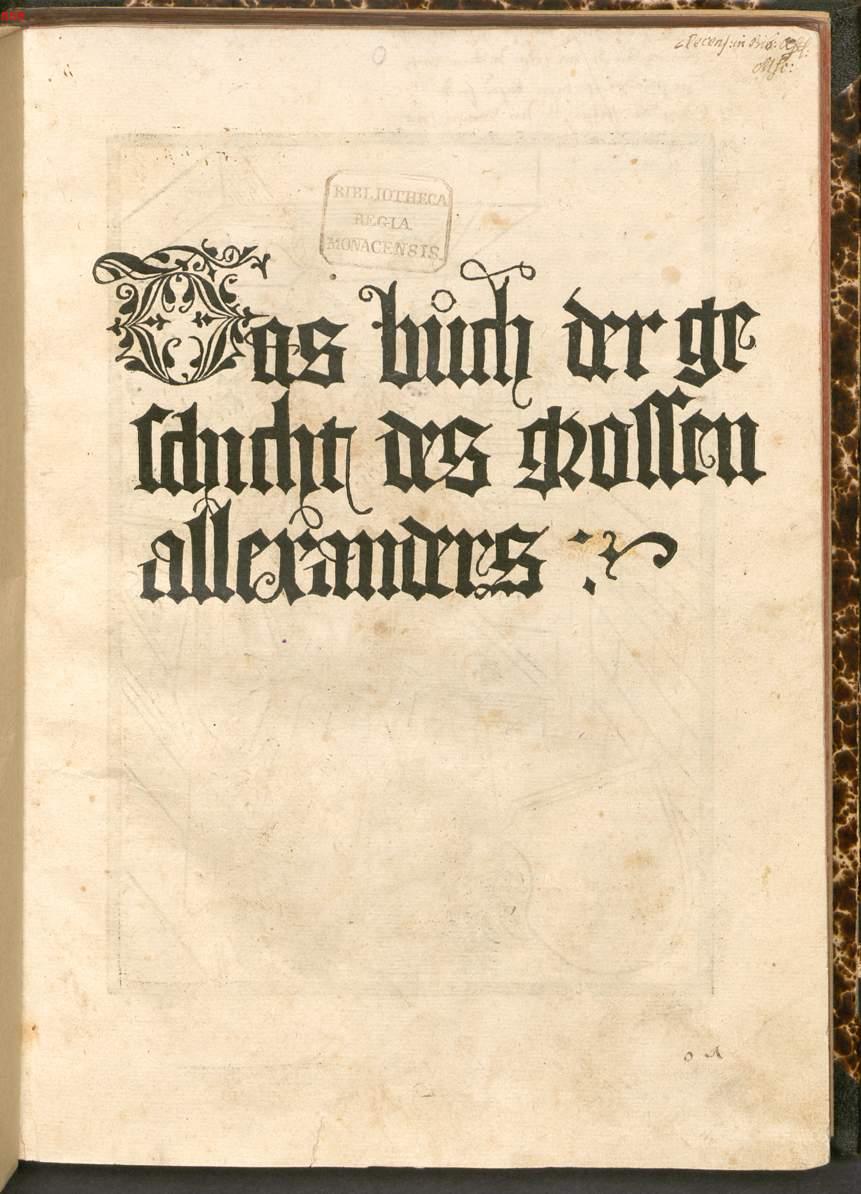 BIBLIOTHECA
REGIA
MONACENSIS.
Das bůch der ge
ſchicht des groſſen
allexanders